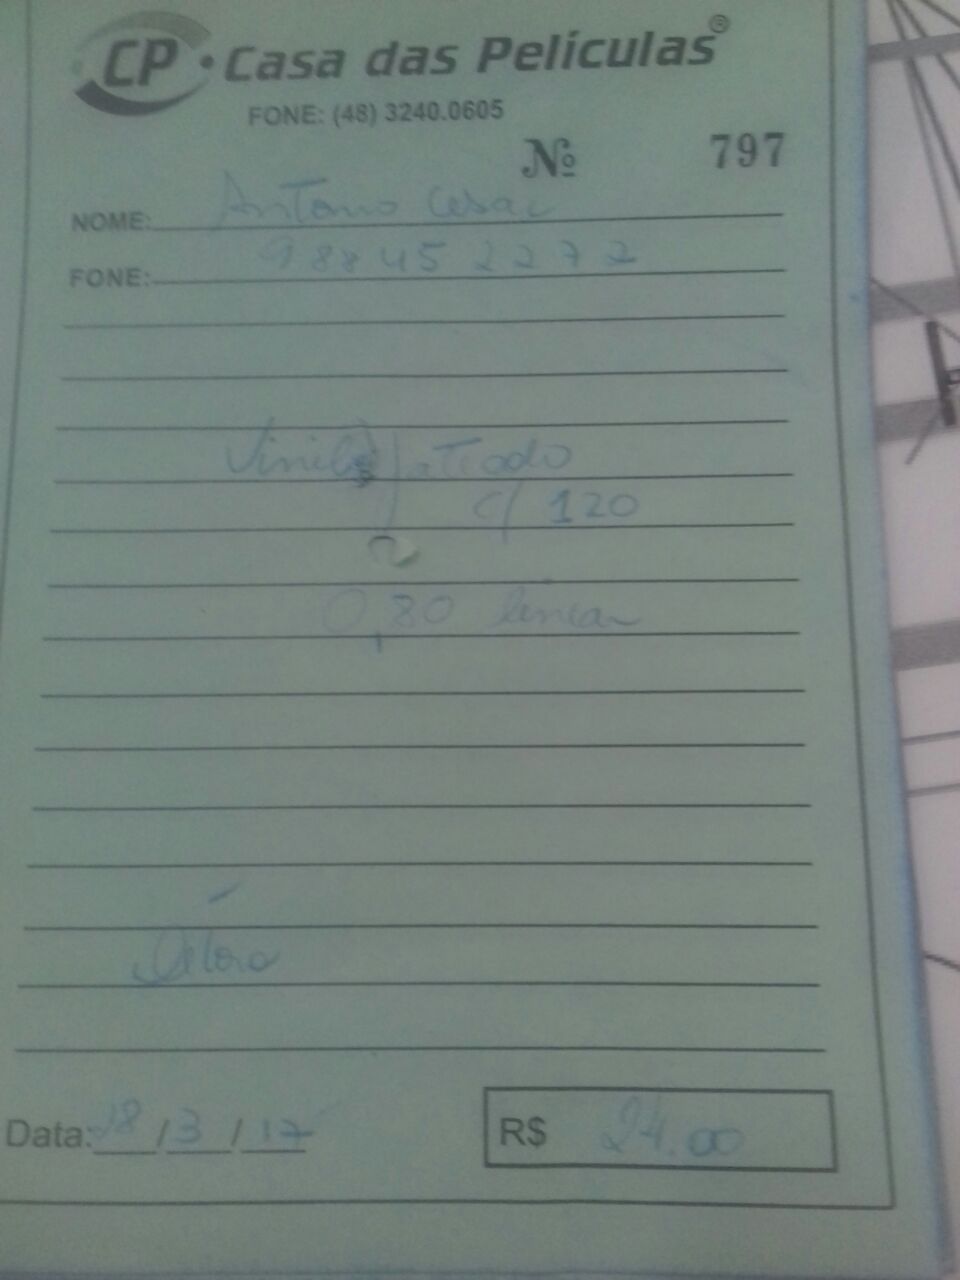 CP • Casa das Películas®
FONE: (48) 3240.0605
Nº 797
NOME: Antonio Cesar
FONE: 988452272
Vinil Jatiado
c/ 120
0,80 linear
Data: 28/3/17
R$ 24.00